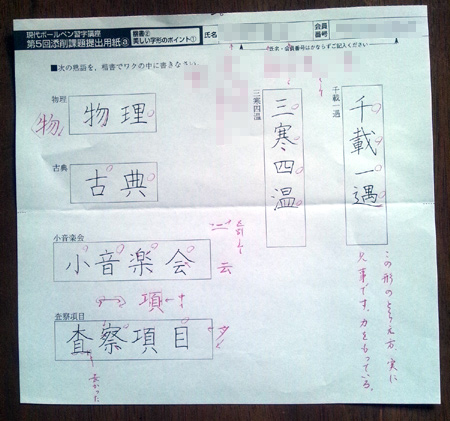 現代ボールペン習字講座
第5回添削課題提出用紙ⓐ
楷書②
美しい字形のポイント①
氏名
会員
番号
氏名・会員番号はかならずご記入ください
■次の熟語を，楷書でワクの中に書きなさい。
千載一遇
千載一遇
三寒四温
三寒四温
物理
物理
物
古典
古典
小音楽会
小音楽会
云
項
査察項目
査察項目
長かった
この形のとらえ方、実に
見事です。力をもっている。